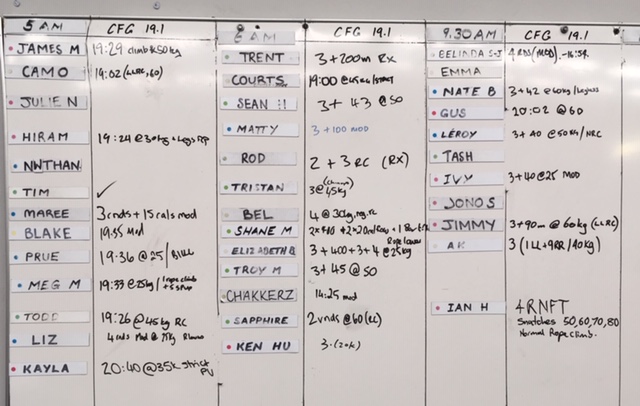 5 AM CFG 19.1
JAMES M 19:29 climb @50kg
CAMO 19:02 (LLRC, 60)
JULIE N
HIRAM 19:24 @30kg + Legs Rp
NWTHAN
TIM ✓
MAREE 3 rnds + 15 cals mod
BLAKE 19:55 Mod
PRUE 19:36 @25 /
MEG M 19:33 @25kg / 1 rope climb
TODD 19:26 @45kg RC
LIZ 4 rnds Mod @
KAYLA 20:40 @35k strict PU
6 AM CFG 19.1
TRENT 3 + 200m Rx
COURTS 19:00 @45kg/
SEAN H 3 + 43 @50
MATTY 3 + 100 MOD
ROD 2 + 3 RC (RX)
TRISTAN 3 @45kg
BEL 4 @30kg
SHANE M
ELIZABETH Q 3 + 400 + 3 + 4 @25kg
TROY M 3 + 45 @50
CHAKKERZ 14:25 mod
SAPPHIRE 2 rnds @60 (RC)
KEN HU 3.
9.30AM CFG 19.1
BELINDA S-J 4 RDS (MOD) - 16:54
EMMA
NATE B 3 + 42 @60kg /
GUS 20:02 @60
LEROY 3 + 40 @50kg / NRC
TASH
IVY 3 + 40 @25 MOD
JONO S
JIMMY 3 + 90m @60kg (LLRC)
AK 3 (1 LL + 9RR / 40kg)
IAN H 4 RNFT
Snatches 50,60,70,80
Normal Rope Climb.